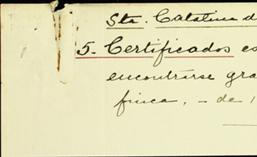 Sta. Catalina d
5. Certificados es
encontrarse gra
finca, - de 1